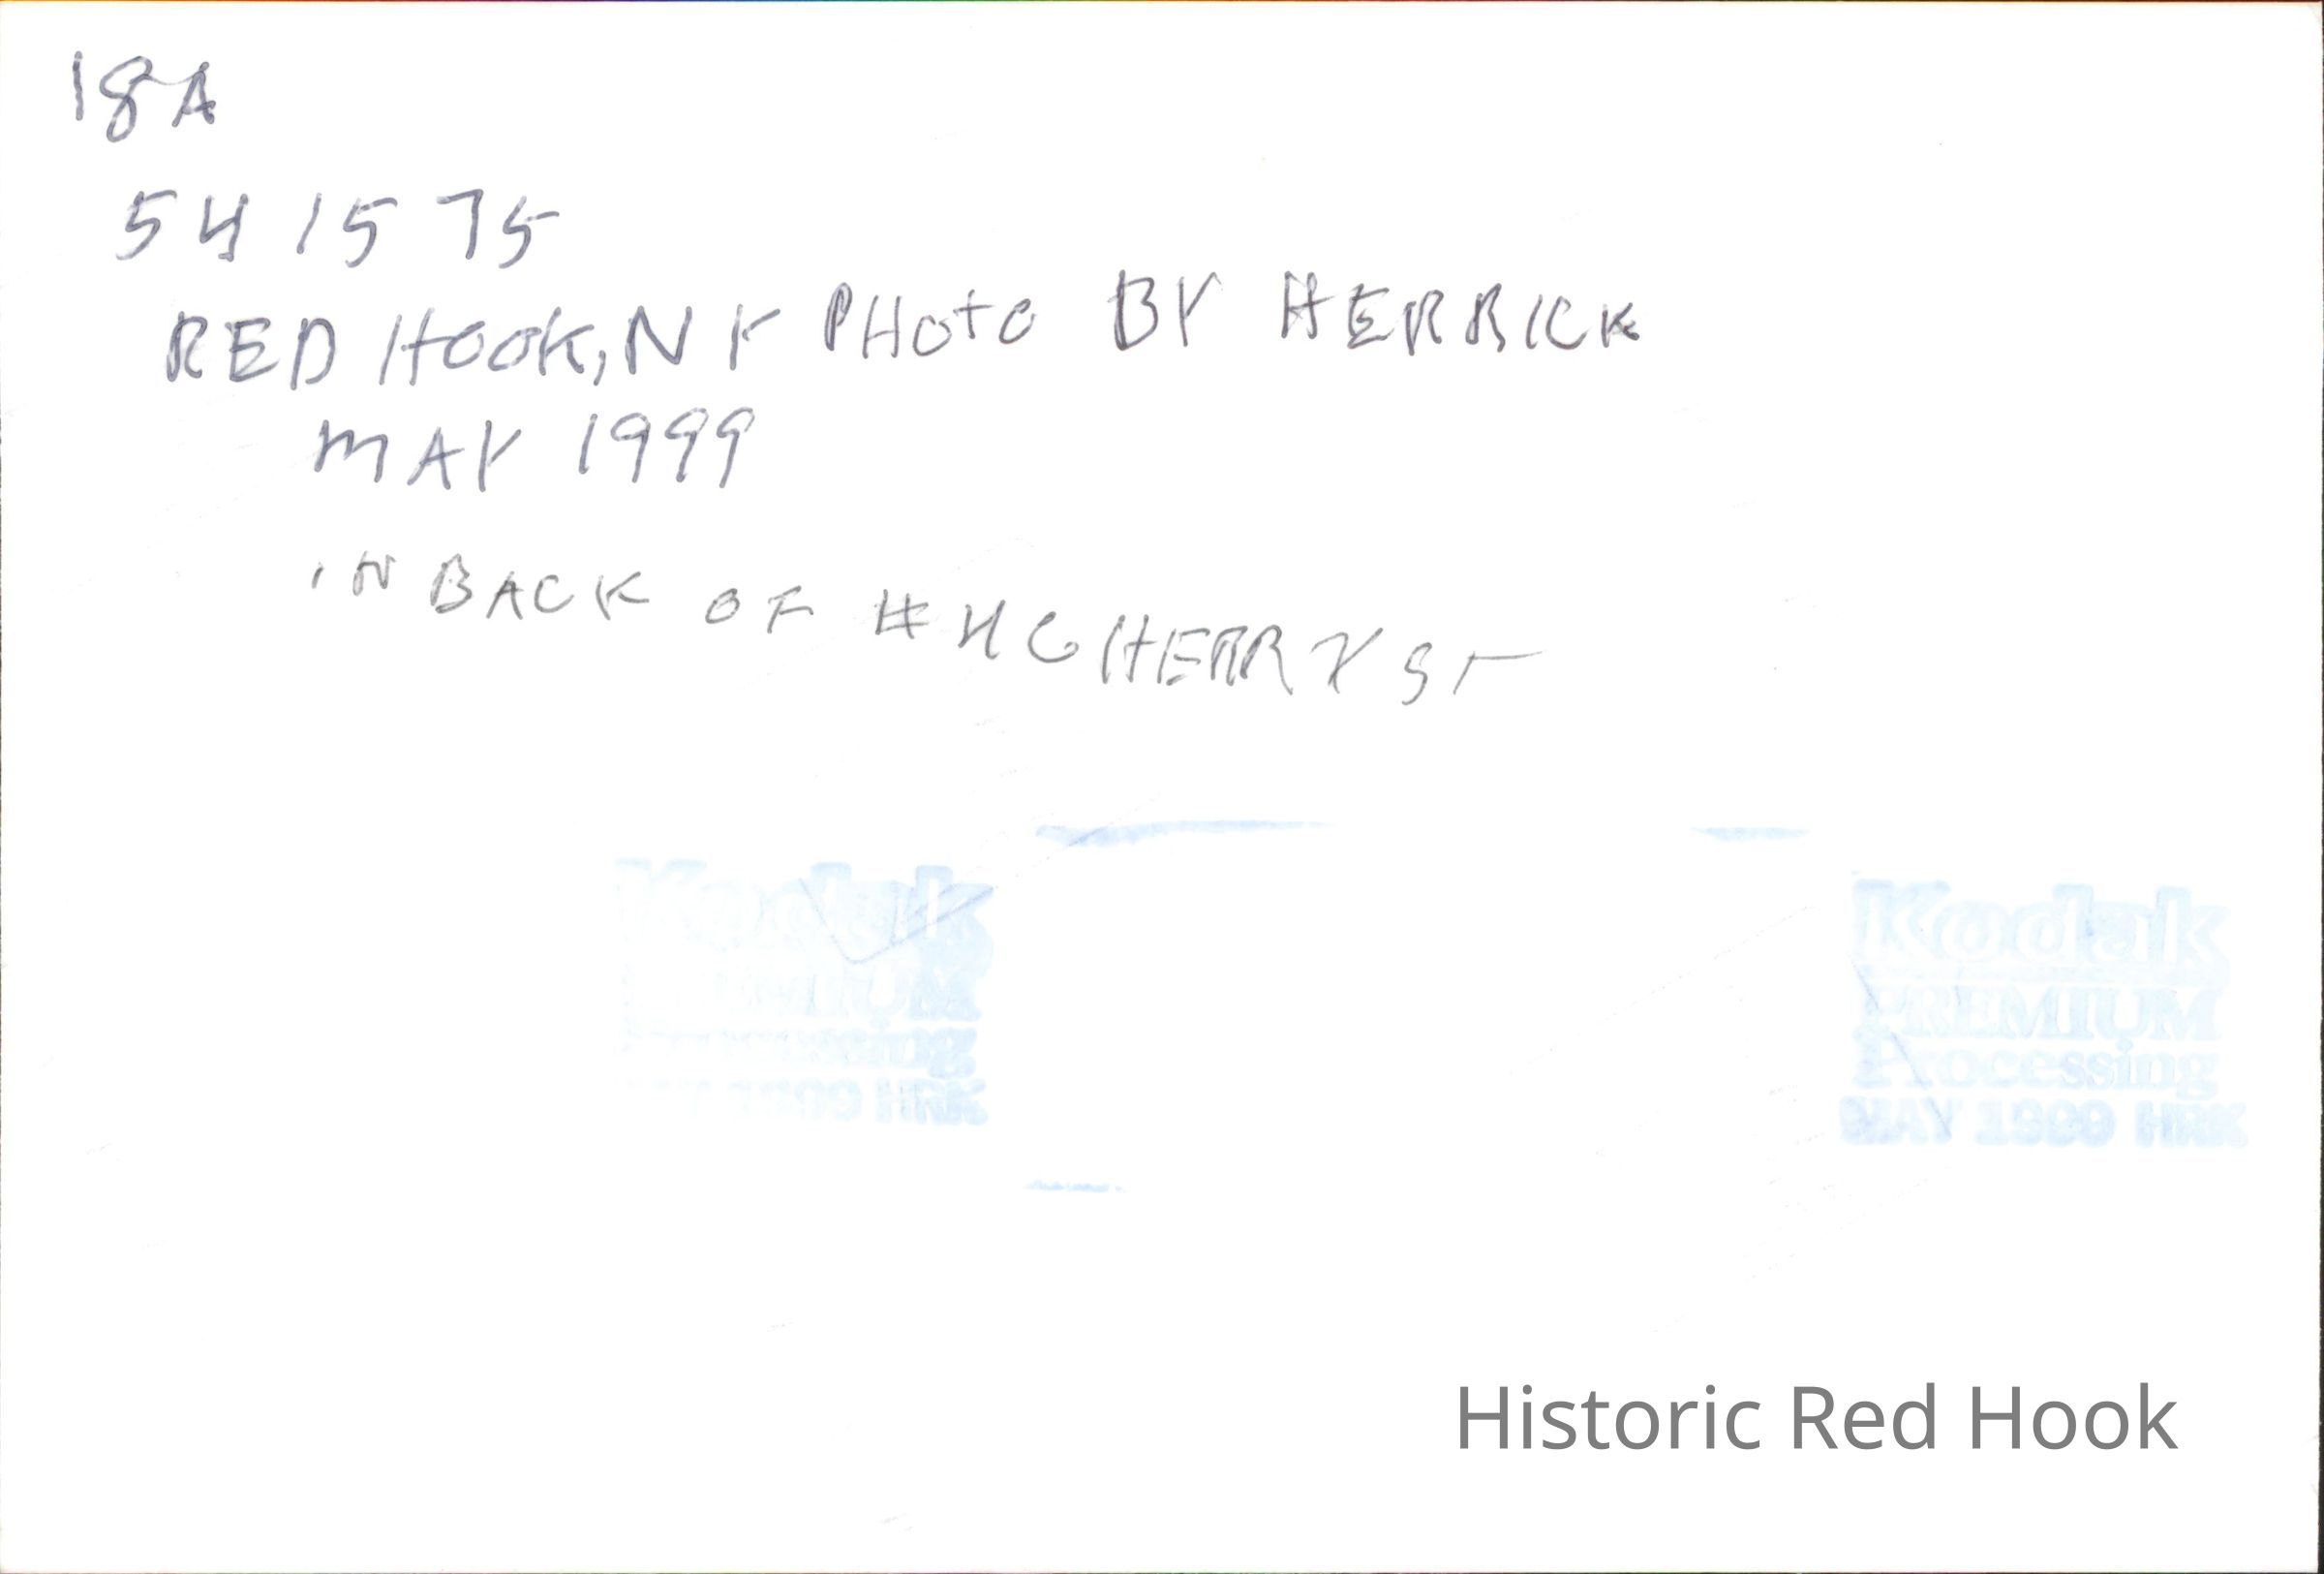 18A
54 15 75
RED HOOK, NY PHOTO BY HERRICK
MAY 1999
IN BACK OF #4 CHERRY ST
Kodak
PREMIUM
Processing
MAY 1999 HRK
Kodak
PREMIUM
Processing
MAY 1999 HRK
Historic Red Hook